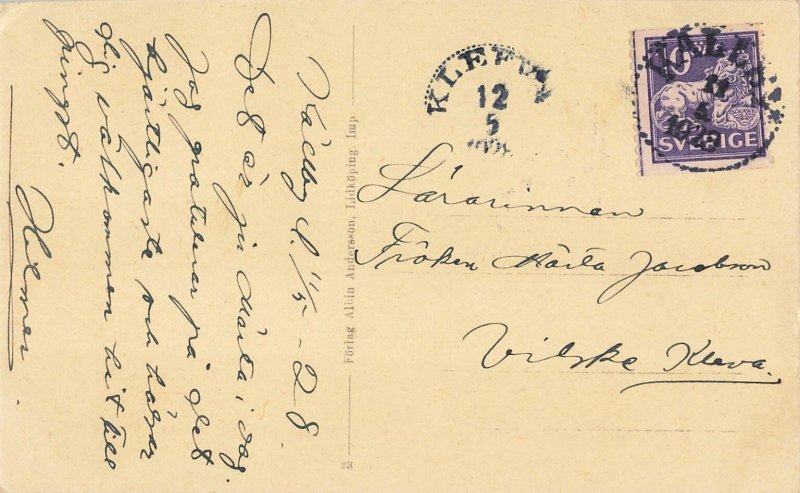 Kållby d. 11/5 - 28.
Det är ju Märta, i dag.
Jag gratulerar på det
hjärtligaste och hälsar
dig välkommen hit till
pingst.
Hilmer
Förlag Albin Andersson, Lidköping. Imp.
KLEFVA
12
5
10
SVERIGE
KÅLLBY
11
5
1928
Lärarinnan
Fröken Märta Jacobson
Vilske Kleva.